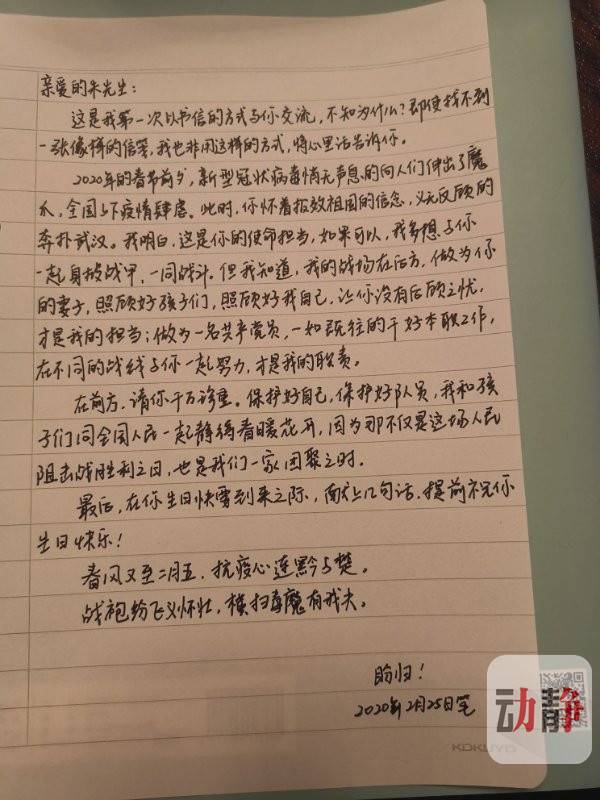 亲爱的朱先生：
这是我第一次以书信的方式与你交流，不知为什么？即使找不到
一张像样的信笺，我也非用这样的方式，将心里话告诉你。
2020年的春节前夕，新型冠状病毒悄无声息的向人们伸出了魔
爪，全国上下疫情肆虐。此时，你怀着报效祖国的信念，义无反顾的
奔扑武汉。我明白，这是你的使命担当，如果可以，我多想与你
一起身披战甲，一同战斗。但我知道，我的战场在后方，做为你
的妻子，照顾好孩子们，照顾好我自己，让你没有后顾之忧，
才是我的担当；做为一名共产党员，一如既往的干好本职工作，
在不同的战线与你一起努力，才是我的职责。
在前方，请你千万珍重。保护好自己，保护好队员，我和孩
子们同全国人民一起静待春暖花开，因为那不仅是这场人民
阻击战胜利之日，也是我们一家团聚之时。
最后，在你生日快要到来之际，献上几句话，提前祝你
生日快乐！
春风又至二月五，抗疫心连黔与楚。
战袍纷飞义怀壮，横扫毒魔有我夫。
盼归！
2020年2月25日笔
KOKUYO
动静